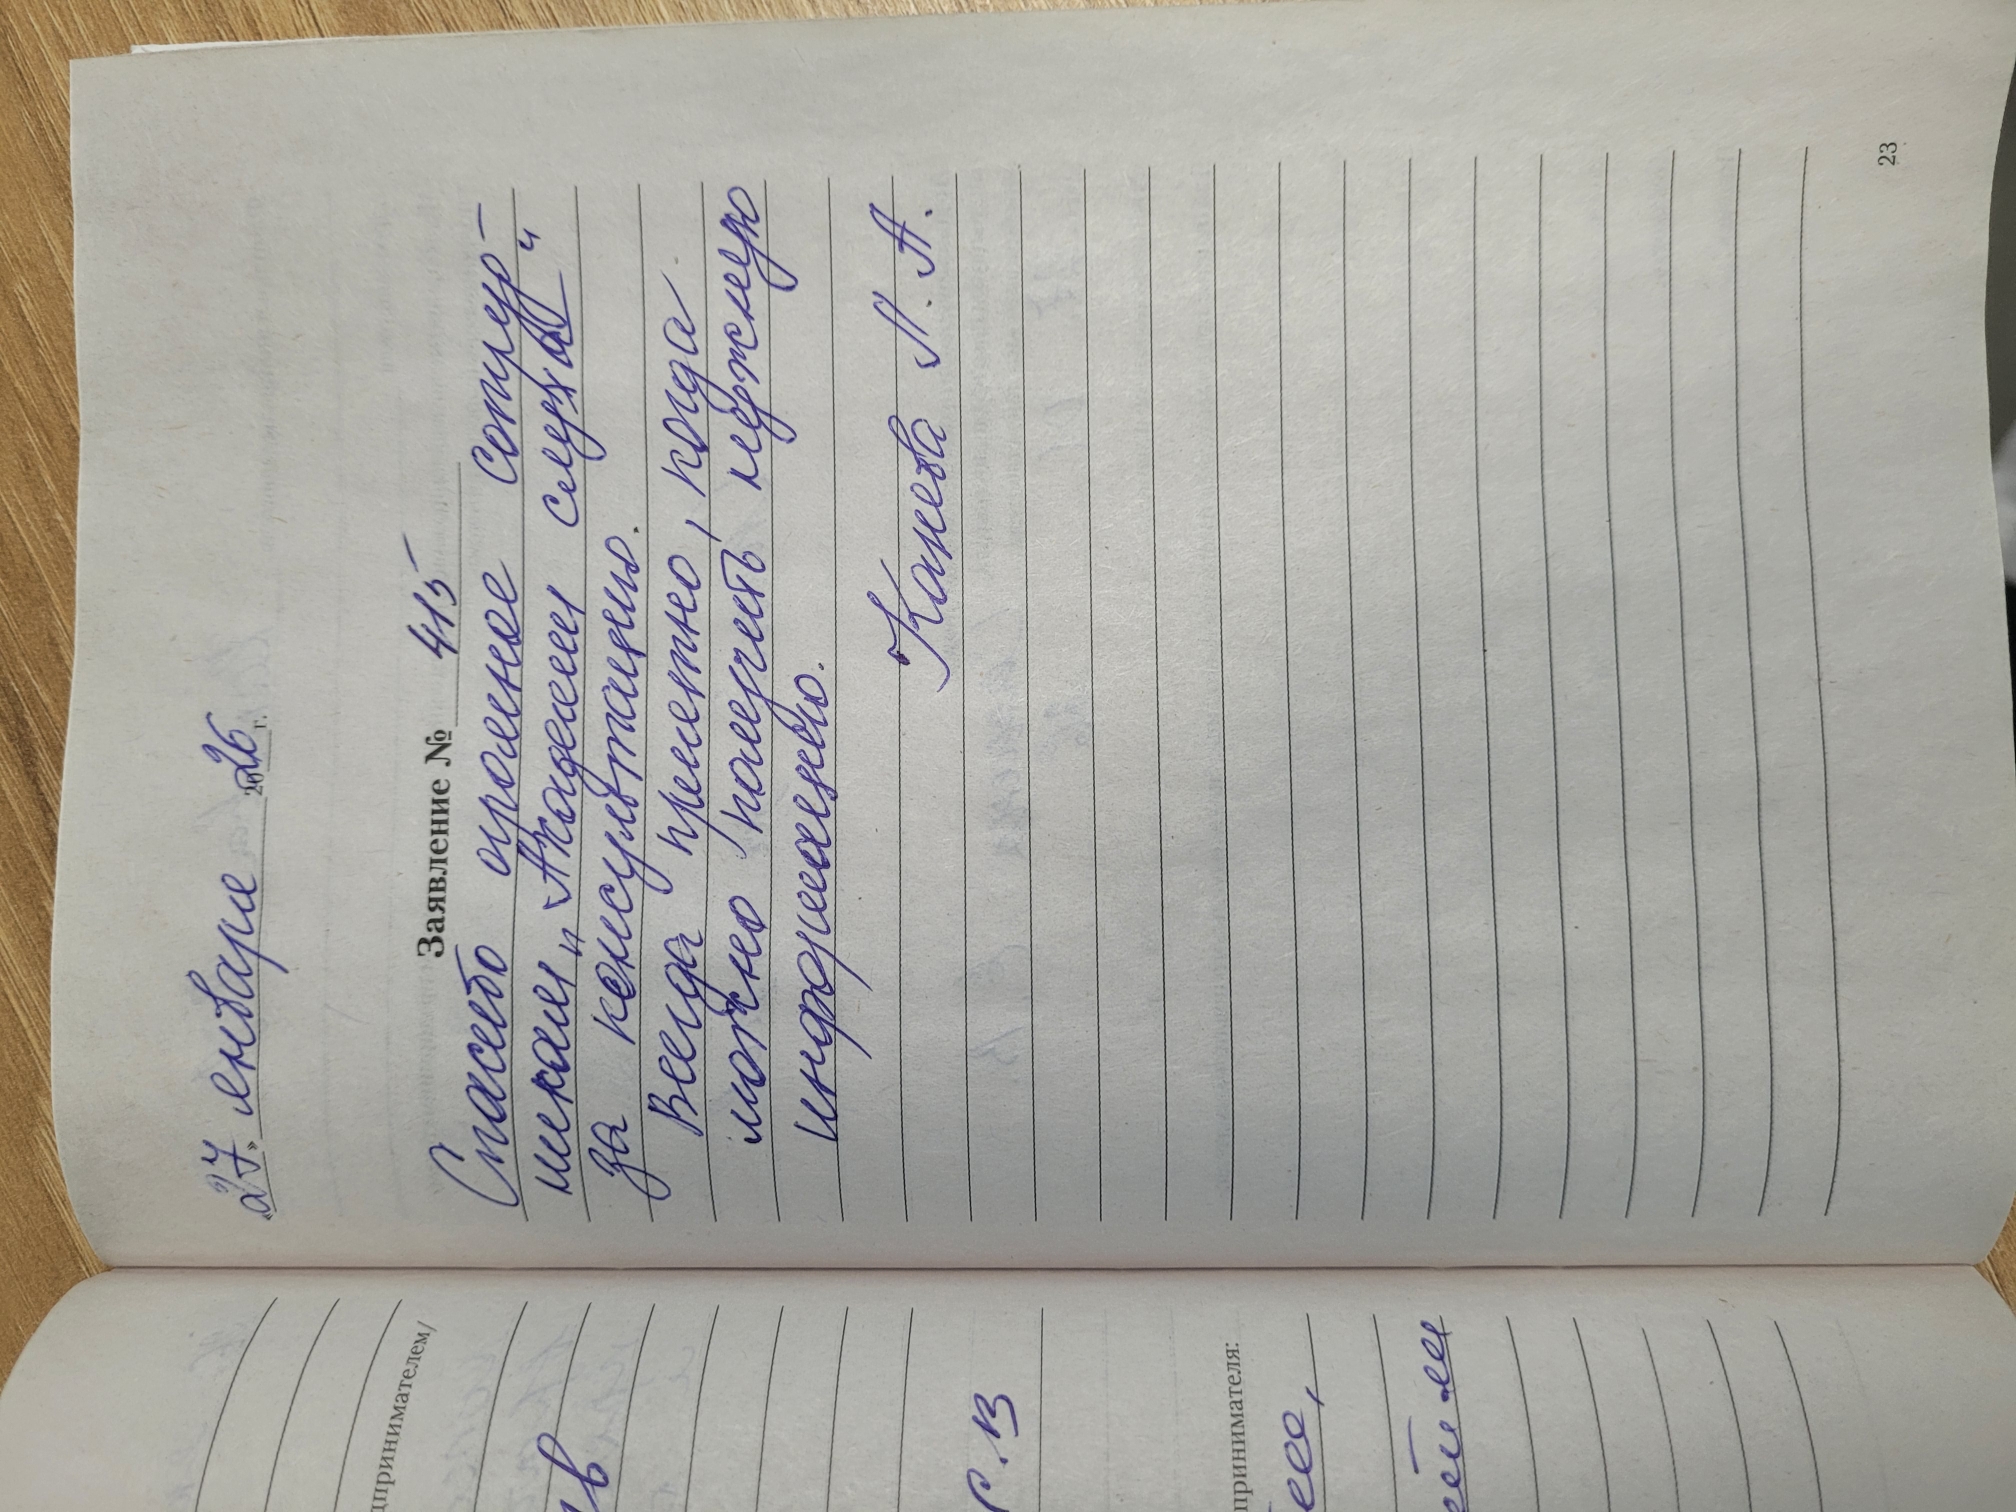 «27» января 2026 г.
Заявление № 415
Спасибо огромное сотруд-
никам „Академии слуха“
за консультацию.
Всегда приятно, когда
можно получить нужную
информацию.
Канева Л. А.
23
дпринимателем/
С.В
принимателя: